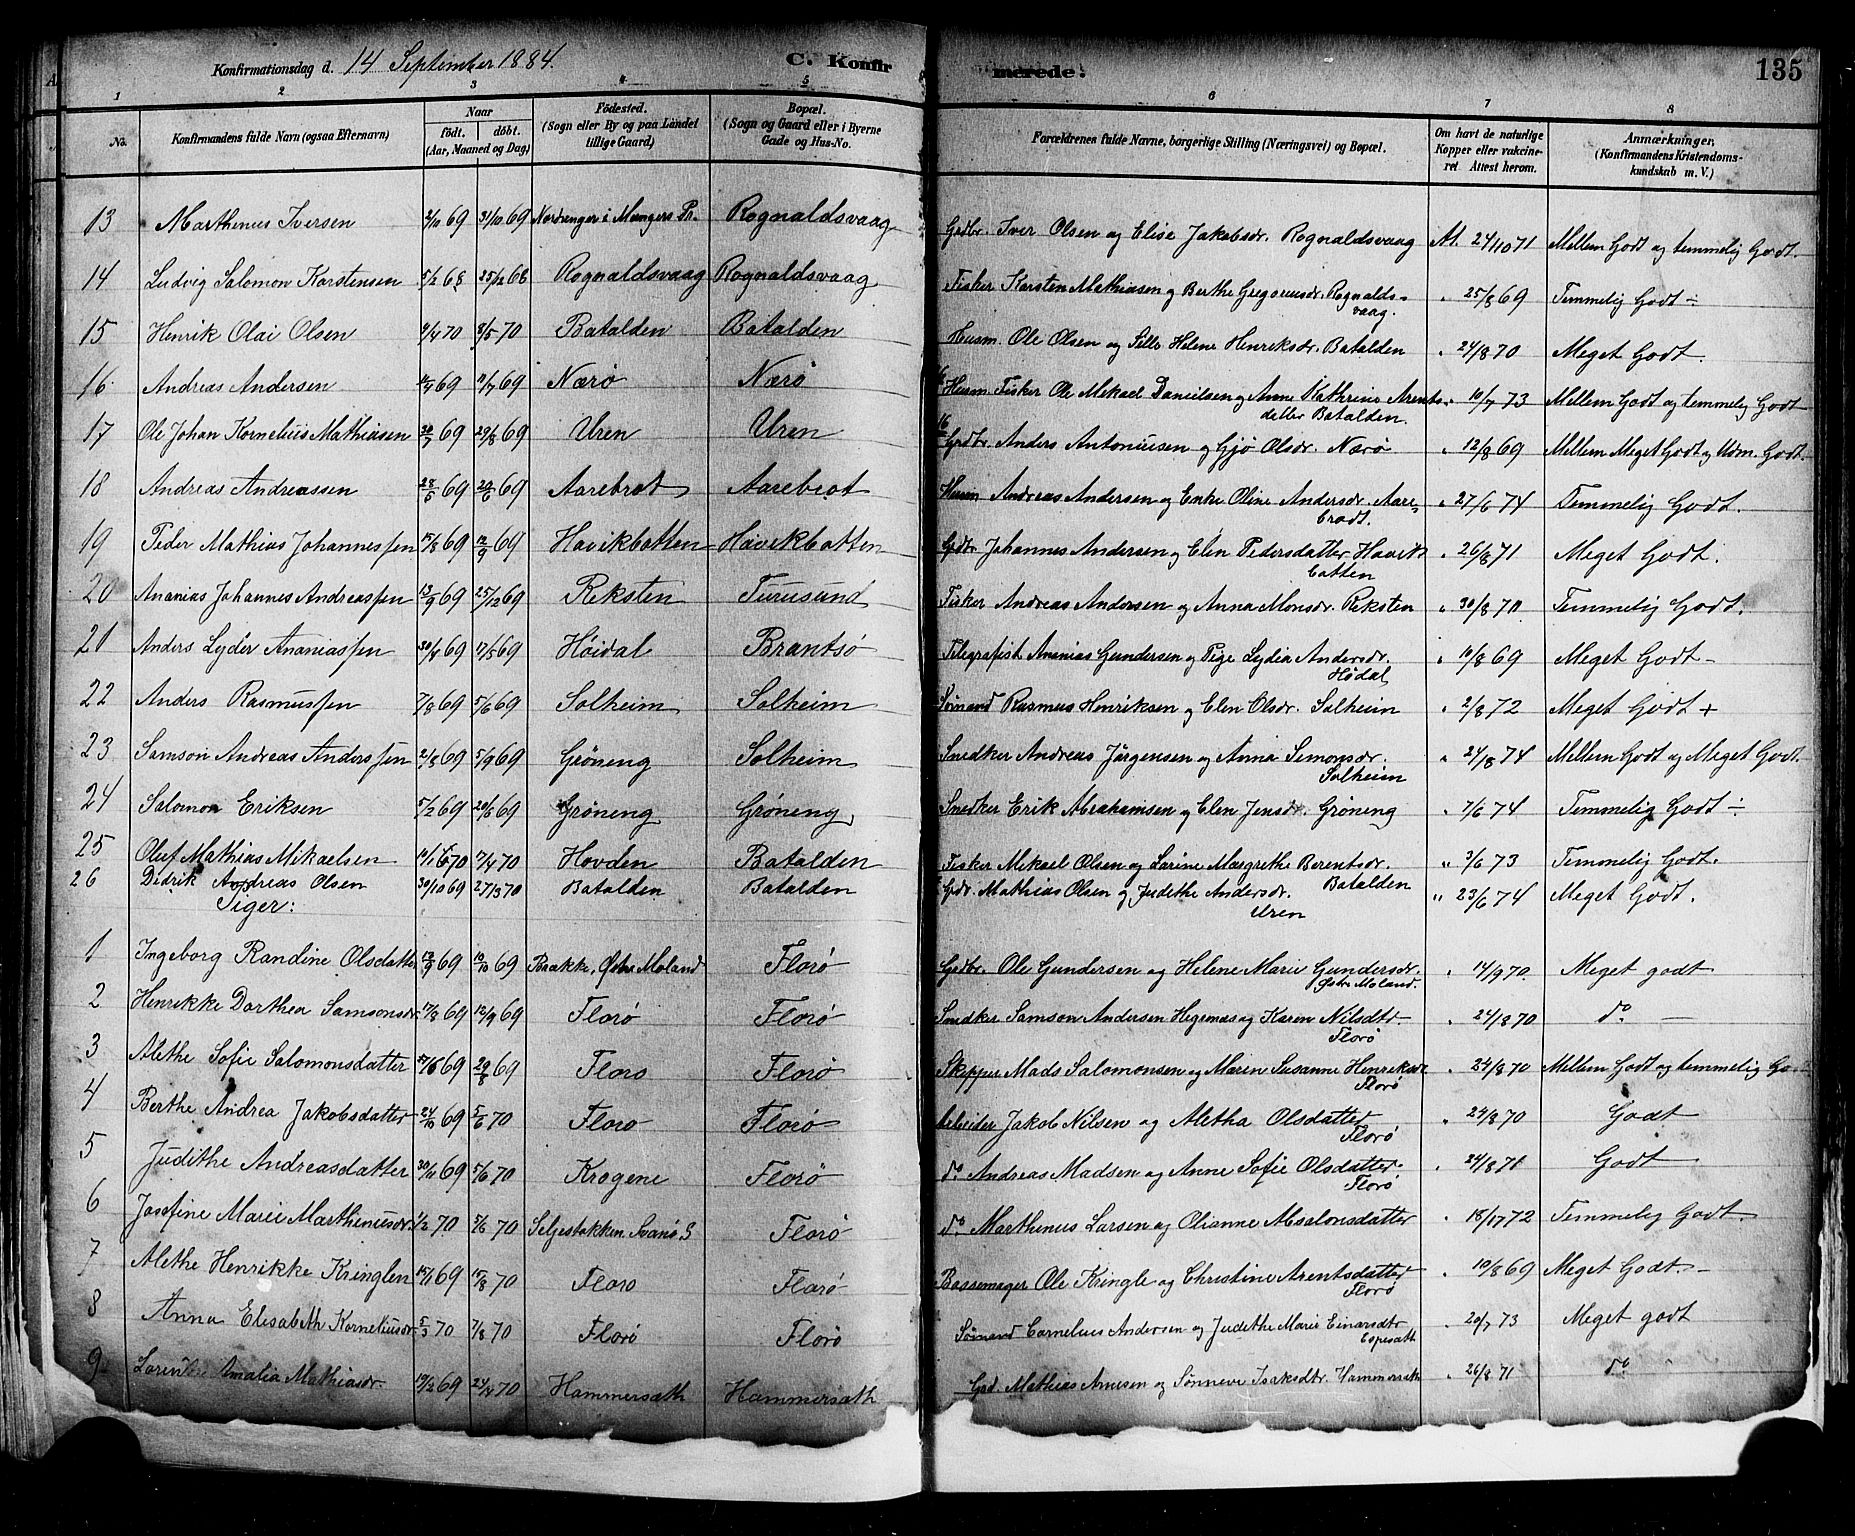 Konfirmationsdag d. 14 September 1884. C. Konfirmerede. 135
1 2 3 4 5 6 7 8
No. Konfirmandens fulde Navn (ogsaa Efternavn) Naar födt. döbt. (Aar, Maaned og Dag) Födested. (Sogn eller By og paa Landet tillige Gaard) Bopæl. (Sogn og Gaard eller i Byerne Gade og Hus-No. Forældrenes fulde Navne, borgerlige Stilling (Næringsvei) og Bopæl. Om havt de naturlige Kopper eller vakcineret Attest herom. Anmærkninger, (Konfirmandens Kristendomskundskab m. V.)
13 Marthenus Iversen 2/10 69 31/10 69 Nordanger i Mangers Pr. Rognaldsvaag Grdbr. Iver Olsen og Elise Jakobsdr. Rognaldsvaag At. 24/10 71 Mellem Godt og temmelig Godt.
14 Ludvig Salomon Karstensen 5/2 68 25/12 68 Rognaldsvaag Rognaldsvaag Fisker Karsten Mathiasen og Berthe Gregoriusdr. Rognalds-
vaag. " 25/8 69 Temmelig Godt ÷
15 Henrik Olai Olsen 9/4 70 8/5 70 Batalden Batalden Husm. Ole Olsen og Sille Helene Henriksdr. Batalden " 24/8 70 Meget Godt.
16 Andreas Andersen 69 11/7 69 Nærö Nærö Husm. Fisker Ole Mekael Danielsen og Anne Kathrine Arents-
datter Batalden. " 10/7 73 Mellem Godt og temmelig Godt
17 Ole Johan Kornelius Mathiasen 30/7 69 29/8 69 Uren Uren 16 Grdbr. Anders Antoniusen og Gjö Olsdr. Nærö " 12/8 69 Mellem Meget Godt og Udm. Godt.
18 Andreas Andreassen 28/5 69 69 Aarebrot Aarebrot Husm Andreas Andersen og Enke Oline Andersdr. Aare-
brodt. " 27/6 74 Temmelig Godt.
19 Peder Mathias Johannessen 15/8 69 12/9 69 Havikbotten Havikbotten Gdbr. Johannes Andersen og Elen Pedersdatter Havik
botten " 26/8 71 Meget Godt.
20 Ananias Johannes Andreassen 13/9 69 25/12 69 Reksten Furusund Fisker Andreas Andersen og Anna Monsdr. Reksten " 30/8 70 Temmelig Godt.
21 Anders Lyder Ananiassen 30/4 69 17/5 69 Höidal Brantsö Telegrafist Ananias Gundersen og Pige Lydia Andersdr.
Hödal " 10/8 69 Meget Godt -
22 Anders Rasmussen 69 5/6 69 Solheim Solheim Sömand Rasmus Henriksen og Elen Olsdr. Solheim " 2/8 72 Meget Godt +
23 Samson Andreas Anderssen 2/8 69 5/9 69 Gröneng Solheim Snedker Andreas Jörgensen og Anna Simonsdr.
Solheim " 24/8 74 Mellem Godt og Meget Godt.
24 Salomon Eriksen 5/2 69 20/6 69 Gröneng Gröneng Snedker Erik Abrahamsen og Elen Jensdr. Gröneng " 7/6 74 Temmelig Godt ÷
25 Oluf Mathias Mikaelsen 14/1 70 17/4 70 Hovden Batalden Fisker Mikael Olsen og Larine Margrethe Berentsdr.
Batalden " 3/6 73 Temmelig Godt.
26 Didrik Andreas Olsen 30/10 69 27/3 70 Batalden Batalden Gdr. Mathias Olsen og Judithe Andersdr.
Uren " 23/6 74 Meget Godt.
Piger:
1 Ingeborg Randine Olsdatter 12/9 69 10/10 69 Bakke, Östre Moland Florö Gdbr. Ole Gundersen og Helene Marie Gundersdr.
Östre Moland. " 14/9 70 Meget godt
2 Henrikke Dorthea Samsonsdr. 17/8 69 12/9 69 Florö Florö Snedker Samson Andersen Hegrenæs og Karen Nilsdtr
Florö " 24/8 70 do -
3 Alethe Sofie Salomonsdatter 69 29/8 69 Floro Florö Skipper Mads Salomonsen og Maren Susanne Henriksdr
Florö " 24/8 70 Mellem Godt og temmelig
4 Berthe Andrea Jakobsdatter 24/10 69 5/6 70 Floro Florö Arbeider Jakob Nilsen og Aletha Olsdatter
Florö " 24/8 70 Godt
5 Judithe Andreasdatter 30/11 69 5/6 70 Krogene Florö do Andreas Madsen og Anne Sofie Olsdatter
Florö " 24/8 71 Godt
6 Josefine Marie Marthinusdr. 1/2 70 5/6 70 Seljestokken Svanö S Florö do Marthenus Larsen og Olianne Absalonsdatter " 18/7 72 Temmelig Godt.
7 Alethe Henrikke Kringlen 15/11 69 15/8 70 Floro Florö Bøssemager Ole Kringle og Christine Arentsdatter
Florö " 10/8 69 Meget Godt. -
8 Anna Elisabeth Korneliusdr. 5/3 70 7/8 70 Florö Florö Sömand Cornelius Andersen og Judithe Marie Einarsdtr
Espesæth " 20/7 73 Meget godt
9 Amalia Mathiasdr. 19/12 69 24/4 70 Hammersæth Hammersæth Gbd. Mathias Arnesen og Sönneve Isaksdtr. Hammersæth " 26/8 71 do